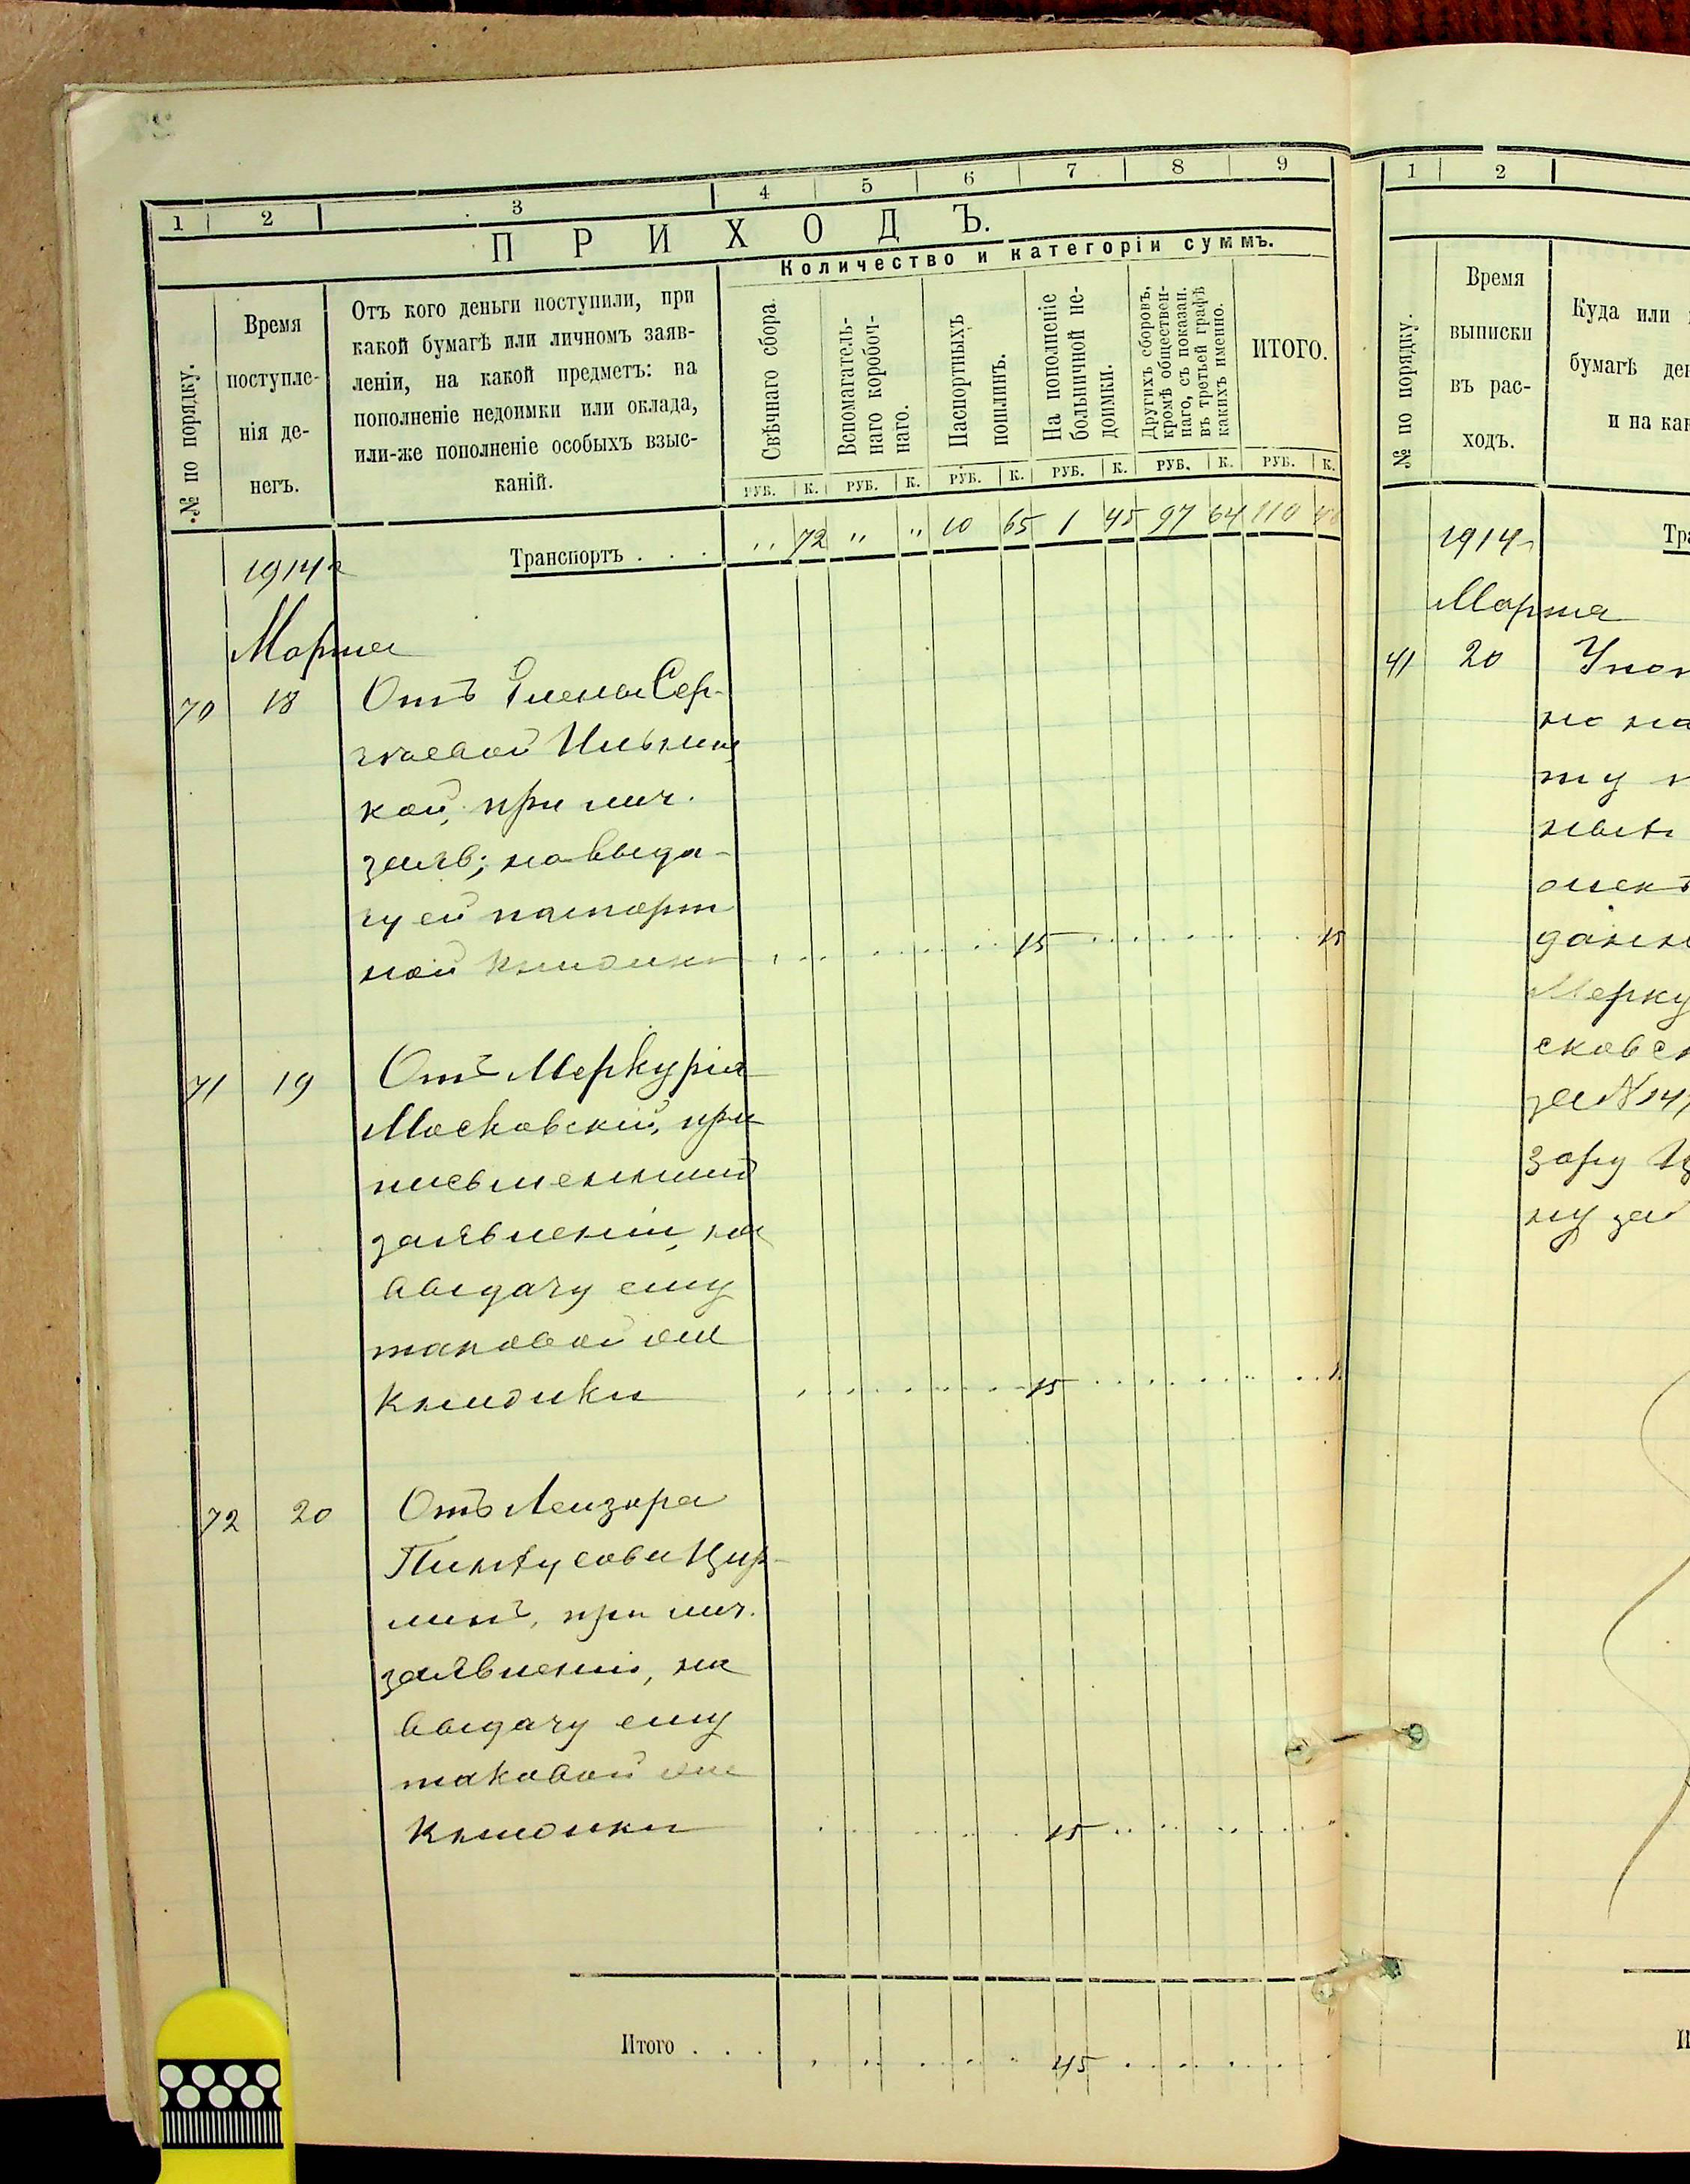 1 2 3 4 5 6 7 8 9
ПРИХОДЪ.
Количество и категоріи суммъ.
№ по порядку.
Время
поступле-
нія де-
негъ.
Отъ кого деньги поступили, при
какой бумагѣ или личномъ заяв-
леніи, на какой предметъ: на
пополненіе недоимки или оклада,
или-же пополненіе особыхъ взыс-
каній.
Свѣчнаго сбора.
Вспомагатель-
наго коробоч-
наго.
Паспортныхъ
пошлинъ.
На пополненіе
больничной не-
доимки.
Другихъ сборовъ,
кромѣ обществен-
наго, съ показан.
въ третьей графѣ
какихъ именно.
ИТОГО.
РУБ. К. РУБ. К. РУБ. К. РУБ. К. РУБ. К. РУБ. К.
Транспортъ . . . „ 72 „ „ 10 65 1 45 97 64 110
1914 г
Марта
70 18 Отъ Елены Сер-
гѣевой
кой, при лич.
заяв; на выда-
чу ей паспорт
ной книжки 15 15
71 19 Отъ Меркурія
Московскій, при
письменном
заявленіи, на
выдачу ему
таковой же
книжки 15
72 20 Отъ Лейзора
Пинкусова Цир-
линъ, при лич.
заявленіи, на
выдачу ему
таковой же
книжки 15
Итого . . . 45
1 2
№ по порядку.
Время
выписки
въ рас-
ходъ.
Куда или
бумагѣ
и на
1914 г
Марта
41 20
но на
ту
Мерку
сковск
за №
зору Ц
ну за